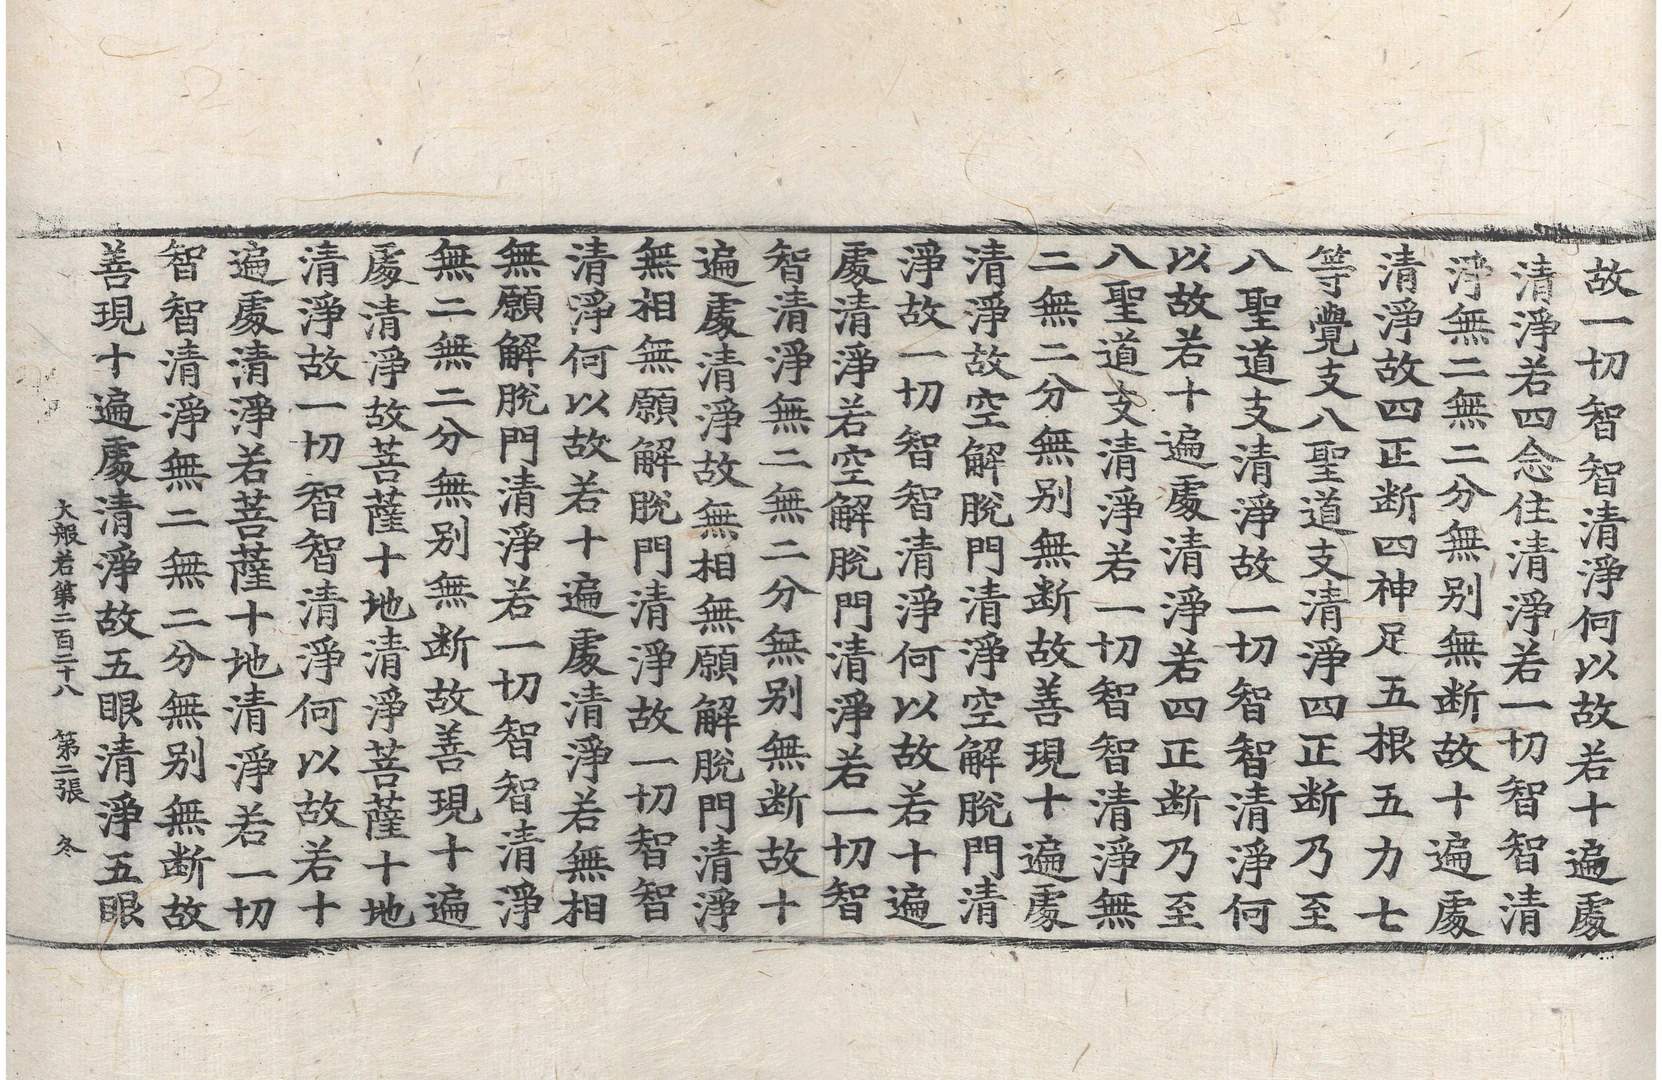 故一切智智清淨何以故若十遍處
清淨若四念住清淨若一切智智清
淨無二無二分無别無断故十遍處
清淨故四正断四神足五根五力七
等覺支八聖道支清淨四正断乃至
八聖道支清淨故一切智智清淨何
以故若十遍處清淨若四正断乃至
八聖道支清淨若一切智智清淨無
二無二分無别無断故善現十遍處
清淨故空解脫門清淨空解脫門清
淨故一切智智清淨何以故若十遍
處清淨若空解脫門清淨若一切智
智清淨無二無二分無别無断故十
遍處清淨故無相無願解脫門清淨
無相無願解脫門清淨故一切智智
清淨何以故若十遍處清淨若無相
無願解脫門清淨若一切智智清淨
無二無二分無别無断故善現十遍
處清淨故菩薩十地清淨菩薩十地
清淨故一切智智清淨何以故若十
遍處清淨若菩薩十地清淨若一切
智智清淨無二無二分無别無断故
善現十遍處清淨故五眼清淨五眼
大般若第二百二十八 第二張 冬